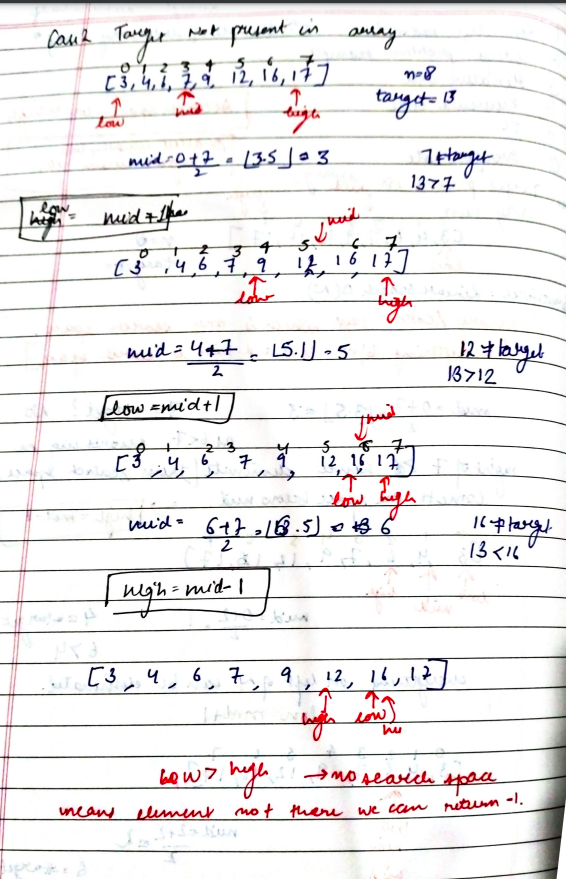 Case 2 Target not present in array
0 1 2 3 4 5 6 7
[3, 4, 6, 7, 9, 12, 16, 17] n=8
low mid high target = 13
mid = 0+7/2 = ⌊3.5⌋ = 3 7 ≠ target
13>7
low = mid+1
mid
0 1 2 3 4 5 6 7
[3, 4, 6, 7, 9, 12, 16, 17]
low high
mid = 4+7/2 = ⌊5.1⌋ = 5 12 ≠ target
13>12
low = mid+1
mid
0 1 2 3 4 5 6 7
[3, 4, 6, 7, 9, 12, 16, 17]
low high
mid = 6+7/2 = ⌊6.5⌋ = 6 16 ≠ target
13<16
high = mid-1
[3, 4, 6, 7, 9, 12, 16, 17]
high low
low > high → no search space
means element not there we can return -1.